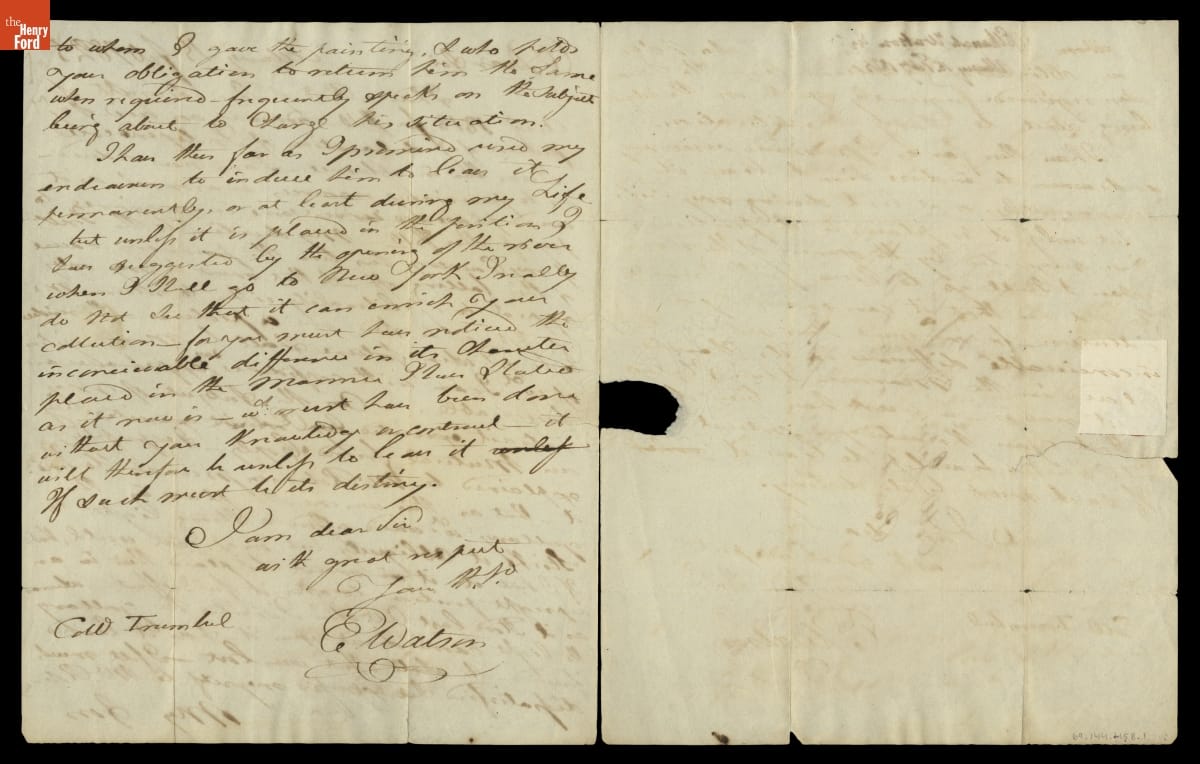 the
Henry
Ford
to whom I gave the painting, & who holds
your obligation to return him the same
when required frequently speaks on the subject
being about to change his situation.
I have thus far as I promised used my
endeavors to induce him to leave it
permanently, or at least during my Life
but unless it is placed in the position I
have suggested by the opening of the river
when I shall go to New York I really
do not see that it can enrich your
collection — for you must have noticed the
inconceivable difference in its character
placed in the manner I have stated
as it now is — wh. must have been done
without your knowledge or consent — it
will therefore be useless to leave it unless
If such must be its destiny.
I am dear Sir
with great respect
Your St.
E Watson
Coll Trumbul
69.144.458.1